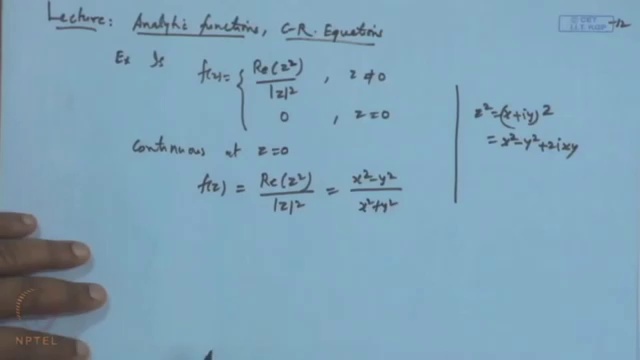 Lecture: Analytic functions, C-R. Equations
Ex Is f(z) = { Re(z²)/|z|² , z ≠ 0
0 , z = 0
Continuous at z=0
f(z) = Re(z²)/|z|² = x²-y²/x²+y²
z² = (x+iy)2
= x²-y²+2ixy
NPTEL